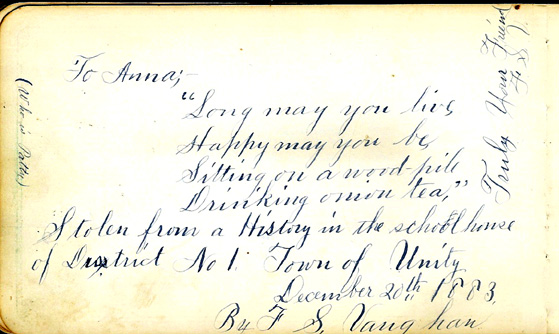 To Anna;-
"Long may you live
Happy may you be
Sitting on a wood-pile
Drinking onion tea,"
Stolen from a History in the school house
of District No 1. Town of Unity
December 20th 1883.
By F. S. Vaughan
Truly Your Friend
F. S. V.
(Who is